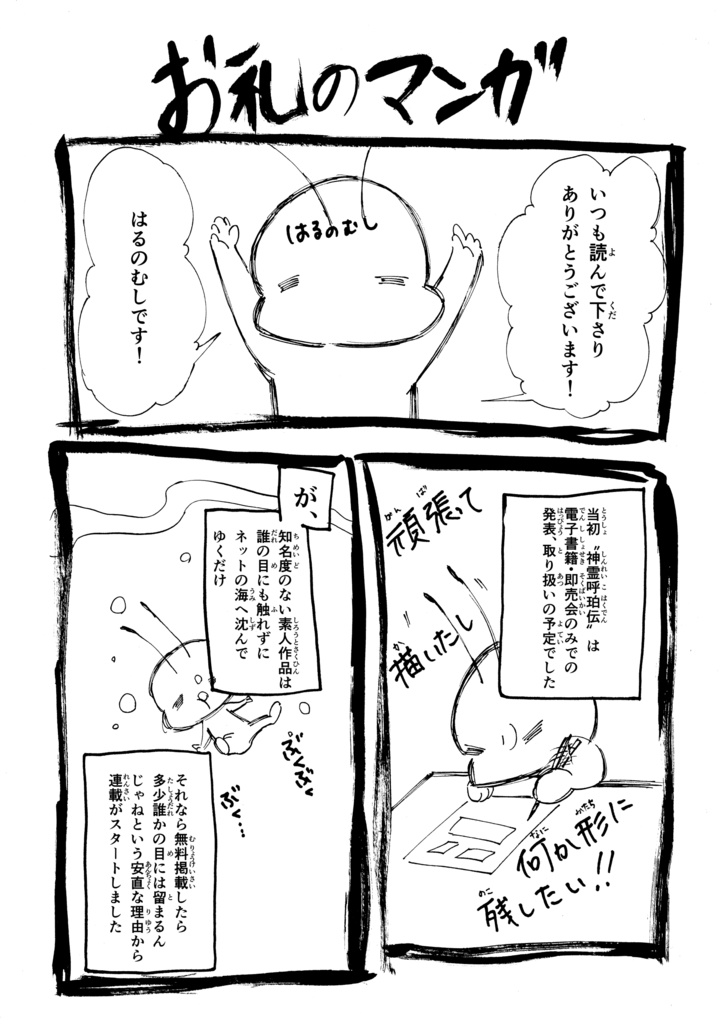 お礼のマンガ
いつも読んで下さり
ありがとうございます!
はるのむし
はるのむしです!
当初〝神霊呼珀伝〟は
電子書籍・即売会のみでの
発表、取り扱いの予定でした
頑張って
描いたし
何か形に
残したい!!
が、
知名度のない素人作品は
誰の目にも触れずに
ネットの海へ沈んで
ゆくだけ
ぶくぶく
ぶく…
それなら無料掲載したら
多少誰かの目には留まるん
じゃねという安直な理由から
連載がスタートしました